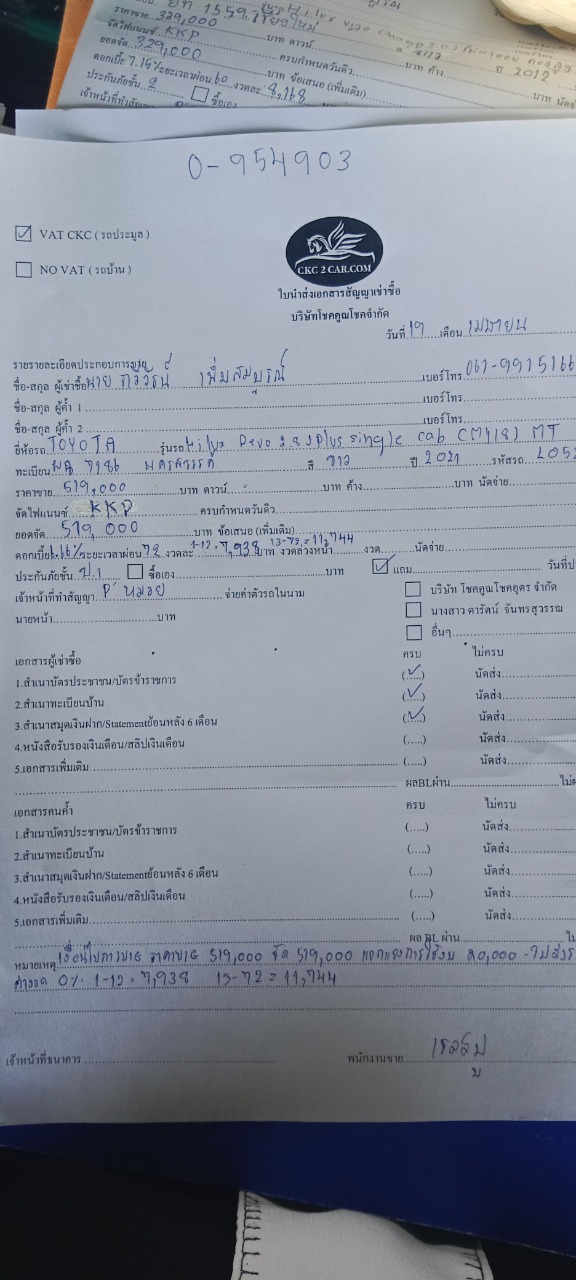 ราคาขาย 329,000 บาท ดาวน์
จัดไฟแนนซ์ KKP
ยอดจัด 329,000 ครบกำหนดวันดิว บาท ค้าง ปี 2012
ดอกเบี้ย 7.15% ระยะเวลาผ่อน 60 งวดละ 8,168 บาท ข้อเสนอ (เพิ่มเติม)
ประกันภัยชั้น 2 ซื้อเอง
0-954903
VAT CKC ( รถประมูล )
NO VAT ( รถบ้าน )
CKC 2 CAR.COM
ใบนำส่งเอกสารสัญญาเช่าซื้อ
บริษัทโชคคูณโชคจำกัด
วันที่ 19 เดือน เมษายน
รายรายละเอียดประกอบการขาย
ชื่อ-สกุล ผู้เช่าซื้อ นาย เพิ่มสมบูรณ์ เบอร์โทร 061-9915166
ชื่อ-สกุล ผู้ค้ำ 1 เบอร์โทร
ชื่อ-สกุล ผู้ค้ำ 2 เบอร์โทร
ยี่ห้อรถ TOYOTA รุ่นรถ Hilux Revo 2.8 J Plus single cab (MY18) MT
ทะเบียน 7186 นครสวรรค์ สี ขาว ปี 2021 รหัสรถ L052
ราคาขาย 519,000 บาท ดาวน์ บาท ค้าง บาท นัดจ่าย
จัดไฟแนนซ์ KKP ครบกำหนดวันดิว
ยอดจัด 519,000 บาท ข้อเสนอ (เพิ่มเติม)
ดอกเบี้ย 6.66% ระยะเวลาผ่อน 72 งวดละ 1-12 = 7,938 13-72 = 11,744 บาท งวดล่วงหน้า งวด นัดจ่าย
ประกันภัยชั้น ป.1 ซื้อเอง บาท แถม วันที่ป
เจ้าหน้าที่ทำสัญญา P' หมวย จ่ายค่าตัวรถในนาม บริษัท โชคคูณโชคอุดร จำกัด
นายหน้า บาท นางสาว ดารัตน์ จันทรสุวรรณ
อื่นๆ
เอกสารผู้เช่าซื้อ ครบ ไม่ครบ
1.สำเนาบัตรประชาชน/บัตรข้าราชการ (.....) นัดส่ง
2.สำเนาทะเบียนบ้าน (.....) นัดส่ง
3.สำเนาสมุดเงินฝาก/Statementย้อนหลัง 6 เดือน (.....) นัดส่ง
4.หนังสือรับรองเงินเดือน/สลิปเงินเดือน (.....) นัดส่ง
5.เอกสารเพิ่มเติม (.....) นัดส่ง
ผลBLผ่าน
เอกสารคนค้ำ ครบ ไม่ครบ
1.สำเนาบัตรประชาชน/บัตรข้าราชการ (.....) นัดส่ง
2.สำเนาทะเบียนบ้าน (.....) นัดส่ง
3.สำเนาสมุดเงินฝาก/Statementย้อนหลัง 6 เดือน (.....) นัดส่ง
4.หนังสือรับรองเงินเดือน/สลิปเงินเดือน (.....) นัดส่ง
5.เอกสารเพิ่มเติม (.....) นัดส่ง
ผล BL ผ่าน
หมายเหตุ เงื่อนไขการขาย ราคาขาย 519,000 จัด 519,000 20,000
ค่างวด 0% 1-12 = 7,938 13-72 = 11,744
เจ้าหน้าที่ธนาคาร พนักงานขาย